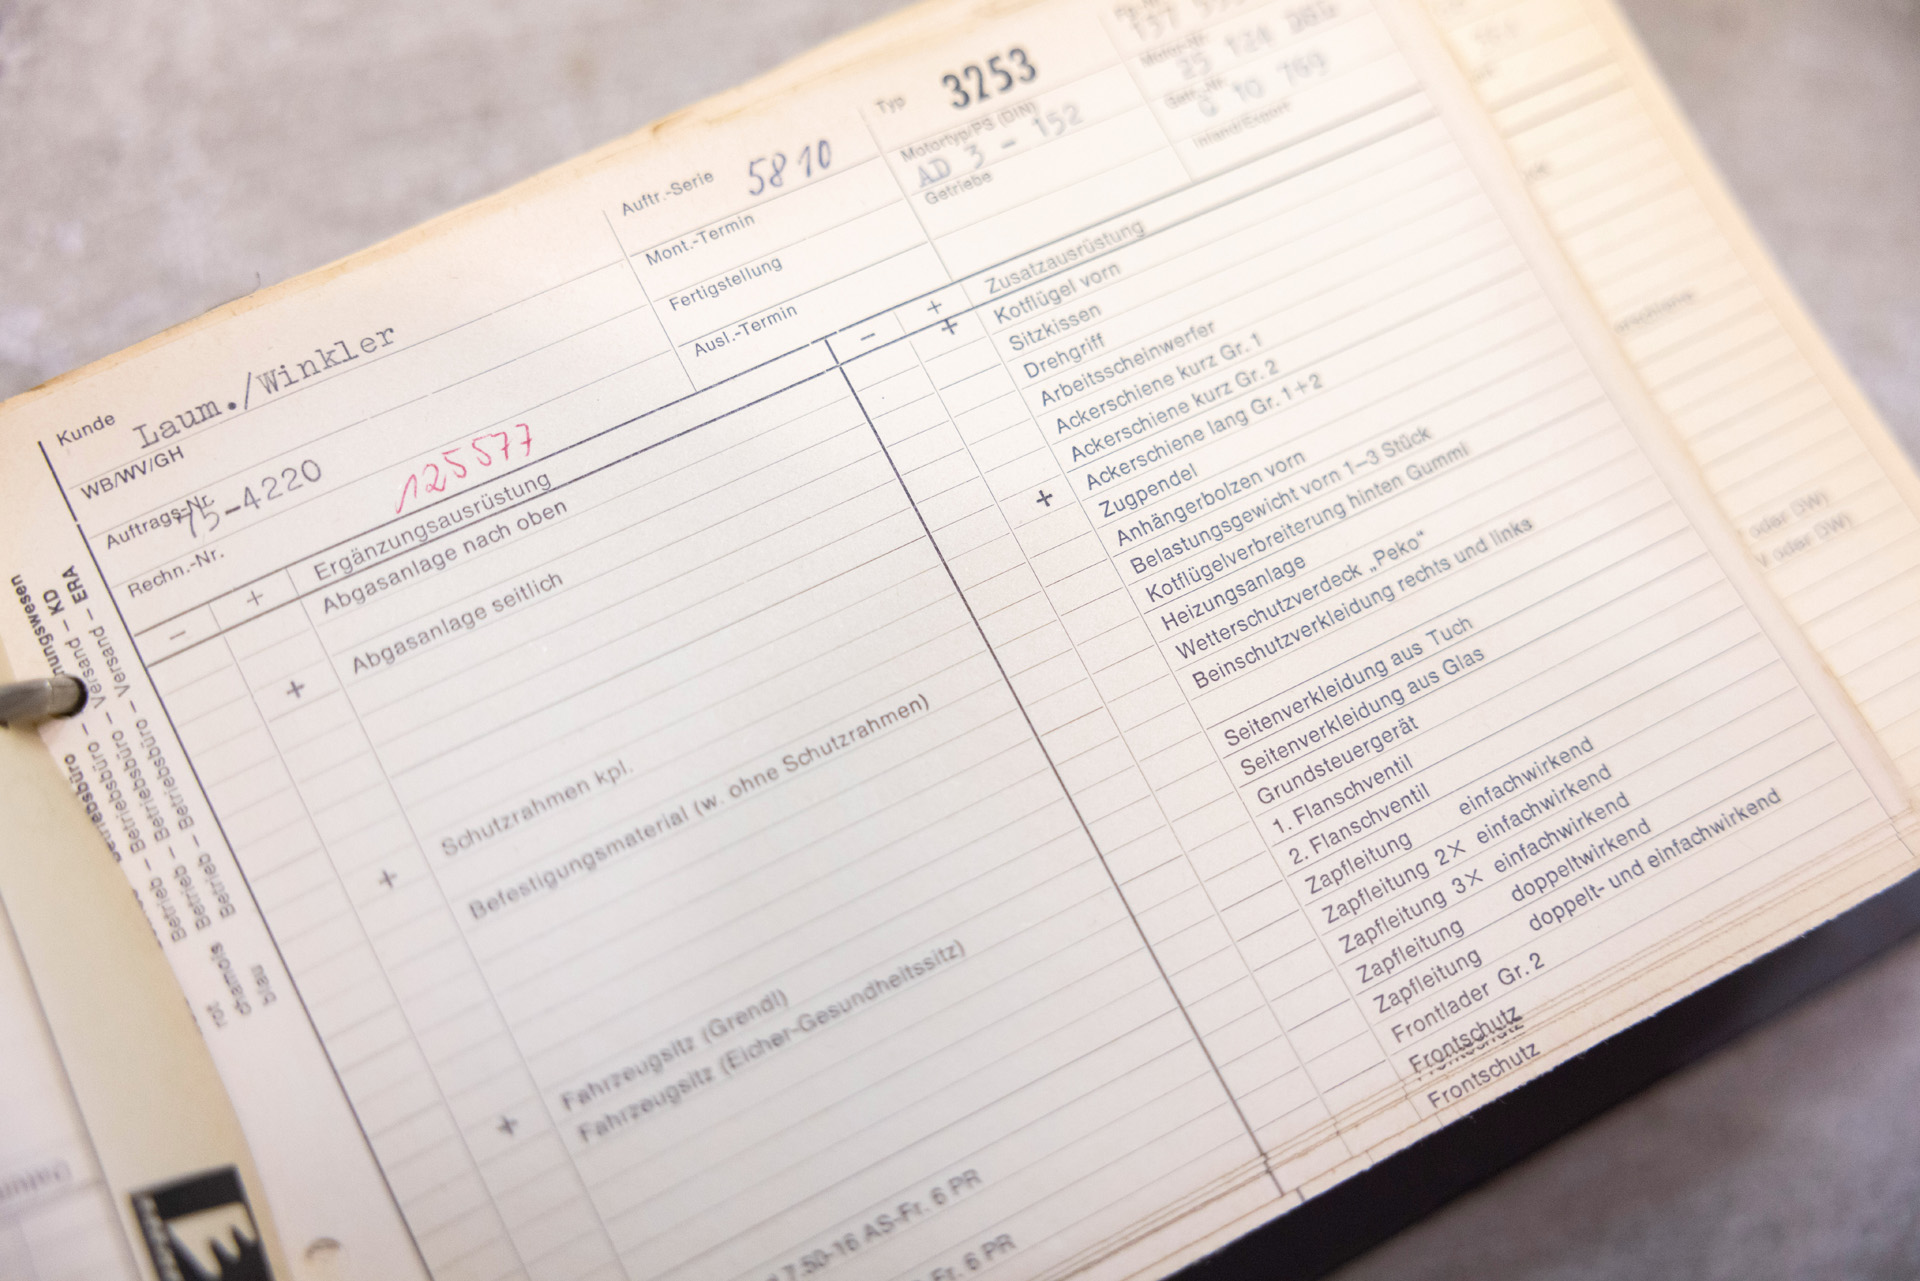 Kunde
Laum./Winkler
WB/WV/GH
Auftrags-Nr.
75-4220
125577
Rechn.-Nr.
Auftr.-Serie 5810
Mont.-Termin
Fertigstellung
Ausl.-Termin
Typ 3253
Motortyp/PS (DIN)
AD 3 - 152
Getriebe
Inland/Export
- + Ergänzungsausrüstung
Abgasanlage nach oben
+ Abgasanlage seitlich
Schutzrahmen kpl.
+ Befestigungsmaterial (w. ohne Schutzrahmen)
Fahrzeugsitz (Grendl)
+ Fahrzeugsitz (Eicher-Gesundheitssitz)
7.50-16 AS-Fr. 6 PR
Fr. 6 PR
- + Zusatzausrüstung
+ Kotflügel vorn
Sitzkissen
Drehgriff
Arbeitsscheinwerfer
Ackerschiene kurz Gr. 1
Ackerschiene kurz Gr. 2
+ Ackerschiene lang Gr. 1+2
Zugpendel
Anhängerbolzen vorn
Belastungsgewicht vorn 1–3 Stück
Kotflügelverbreiterung hinten Gummi
Heizungsanlage
Wetterschutzverdeck „Peko“
Beinschutzverkleidung rechts und links
Seitenverkleidung aus Tuch
Seitenverkleidung aus Glas
Grundsteuergerät
1. Flanschventil
2. Flanschventil
Zapfleitung einfachwirkend
Zapfleitung 2× einfachwirkend
Zapfleitung 3× einfachwirkend
Zapfleitung doppeltwirkend
Zapfleitung doppelt- und einfachwirkend
Frontlader Gr. 2
Frontschutz
Frontschutz
Betriebsbüro – Versand – KD
Betriebsbüro – Versand – ERA
rot Betrieb – Betriebsbüro
chamois Betrieb – Betriebsbüro
blau Betrieb – Betriebsbüro
oder DW)
V oder DW)